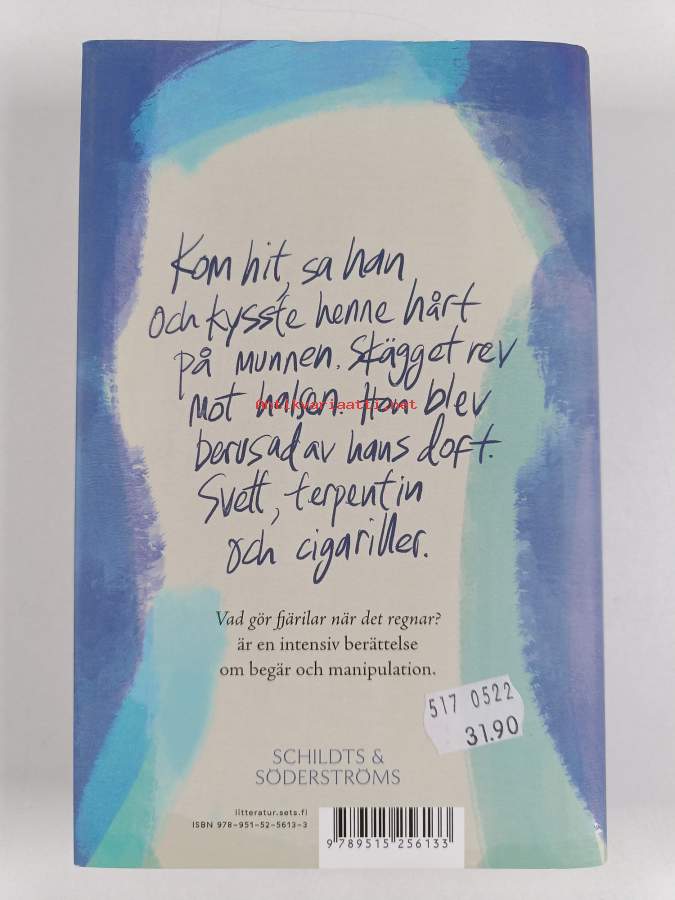 Kom hit, sa han
och kysste henne hårt
på munnen. Skägget rev
mot halsen. Hon blev
Antikvariaatti.net
berusad av hans doft.
Svett, terpentin
och cigariller.
Vad gör fjärilar när det regnar?
är en intensiv berättelse
om begär och manipulation.
517 0522
31.90
SCHILDTS &
SÖDERSTRÖMS
litteratur.sets.fi
ISBN 978-951-52-5613-3
9 789515 256133